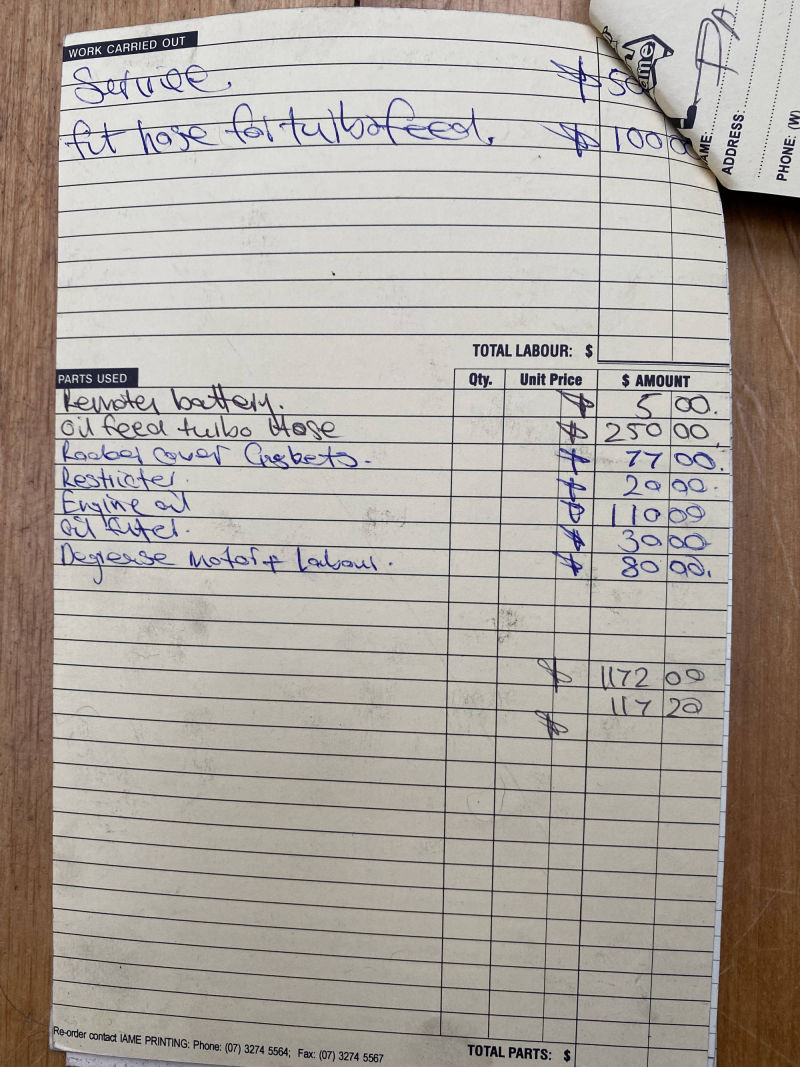 WORK CARRIED OUT
Service. $ 50
fit hose for turbo feed. $ 100 00
TOTAL LABOUR: $
PARTS USED Qty. Unit Price $ AMOUNT
Remoter battery. $ 5 00.
Oil feed turbo Hose $ 250 00.
Rocker cover Gaskets. $ 77 00.
Restricter. $ 20 00.
Engine oil $ 110 00
Oil filter. $ 30 00
Degrease Motor + Labour. $ 80 00.
$ 1172 00
$ 117 20
Re-order contact IAME PRINTING: Phone: (07) 3274 5564; Fax: (07) 3274 5567
TOTAL PARTS: $
iame
PA
AME:
ADDRESS:
PHONE: (W)